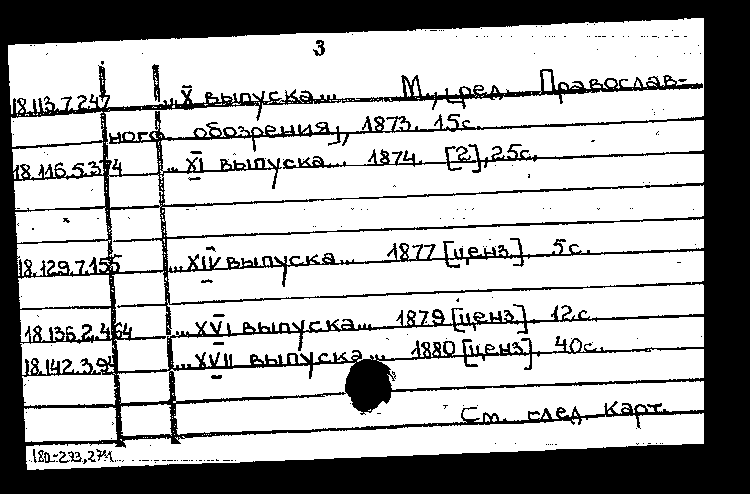 3
18.113.7.247 „X выпуска... М., [ред. Православ-
ного обозрения], 1873. 15с.
18.116.5.374 ...XI выпуска... 1874. [2], 25с.
18.129.7.155 ...XIV выпуска... 1877 [ценз]. 5с.
18.136.2.464 ...XVI выпуска... 1879 [ценз]. 12с.
18.142.3.94 ...XVII выпуска... 1880 [ценз]. 40с.
См. след. карт.